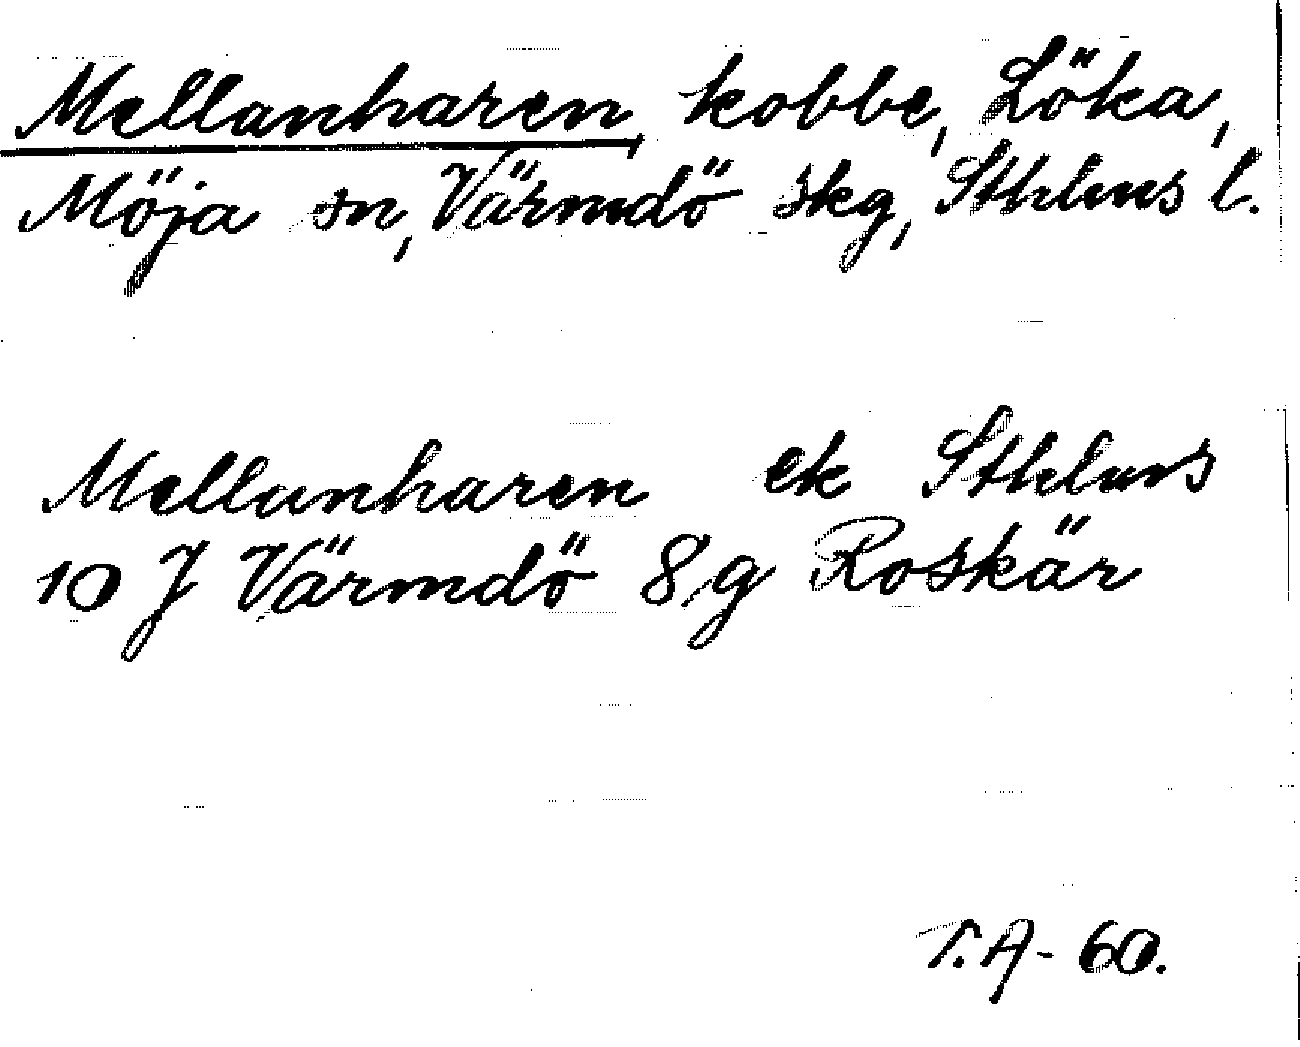 Mellanharen, kobbe, Löka,
Möja sn, Värmdö skg, Sthlms l.
Mellanharen ek Sthlms
10 J Värmdö 8g Roskär
T.A- 60.